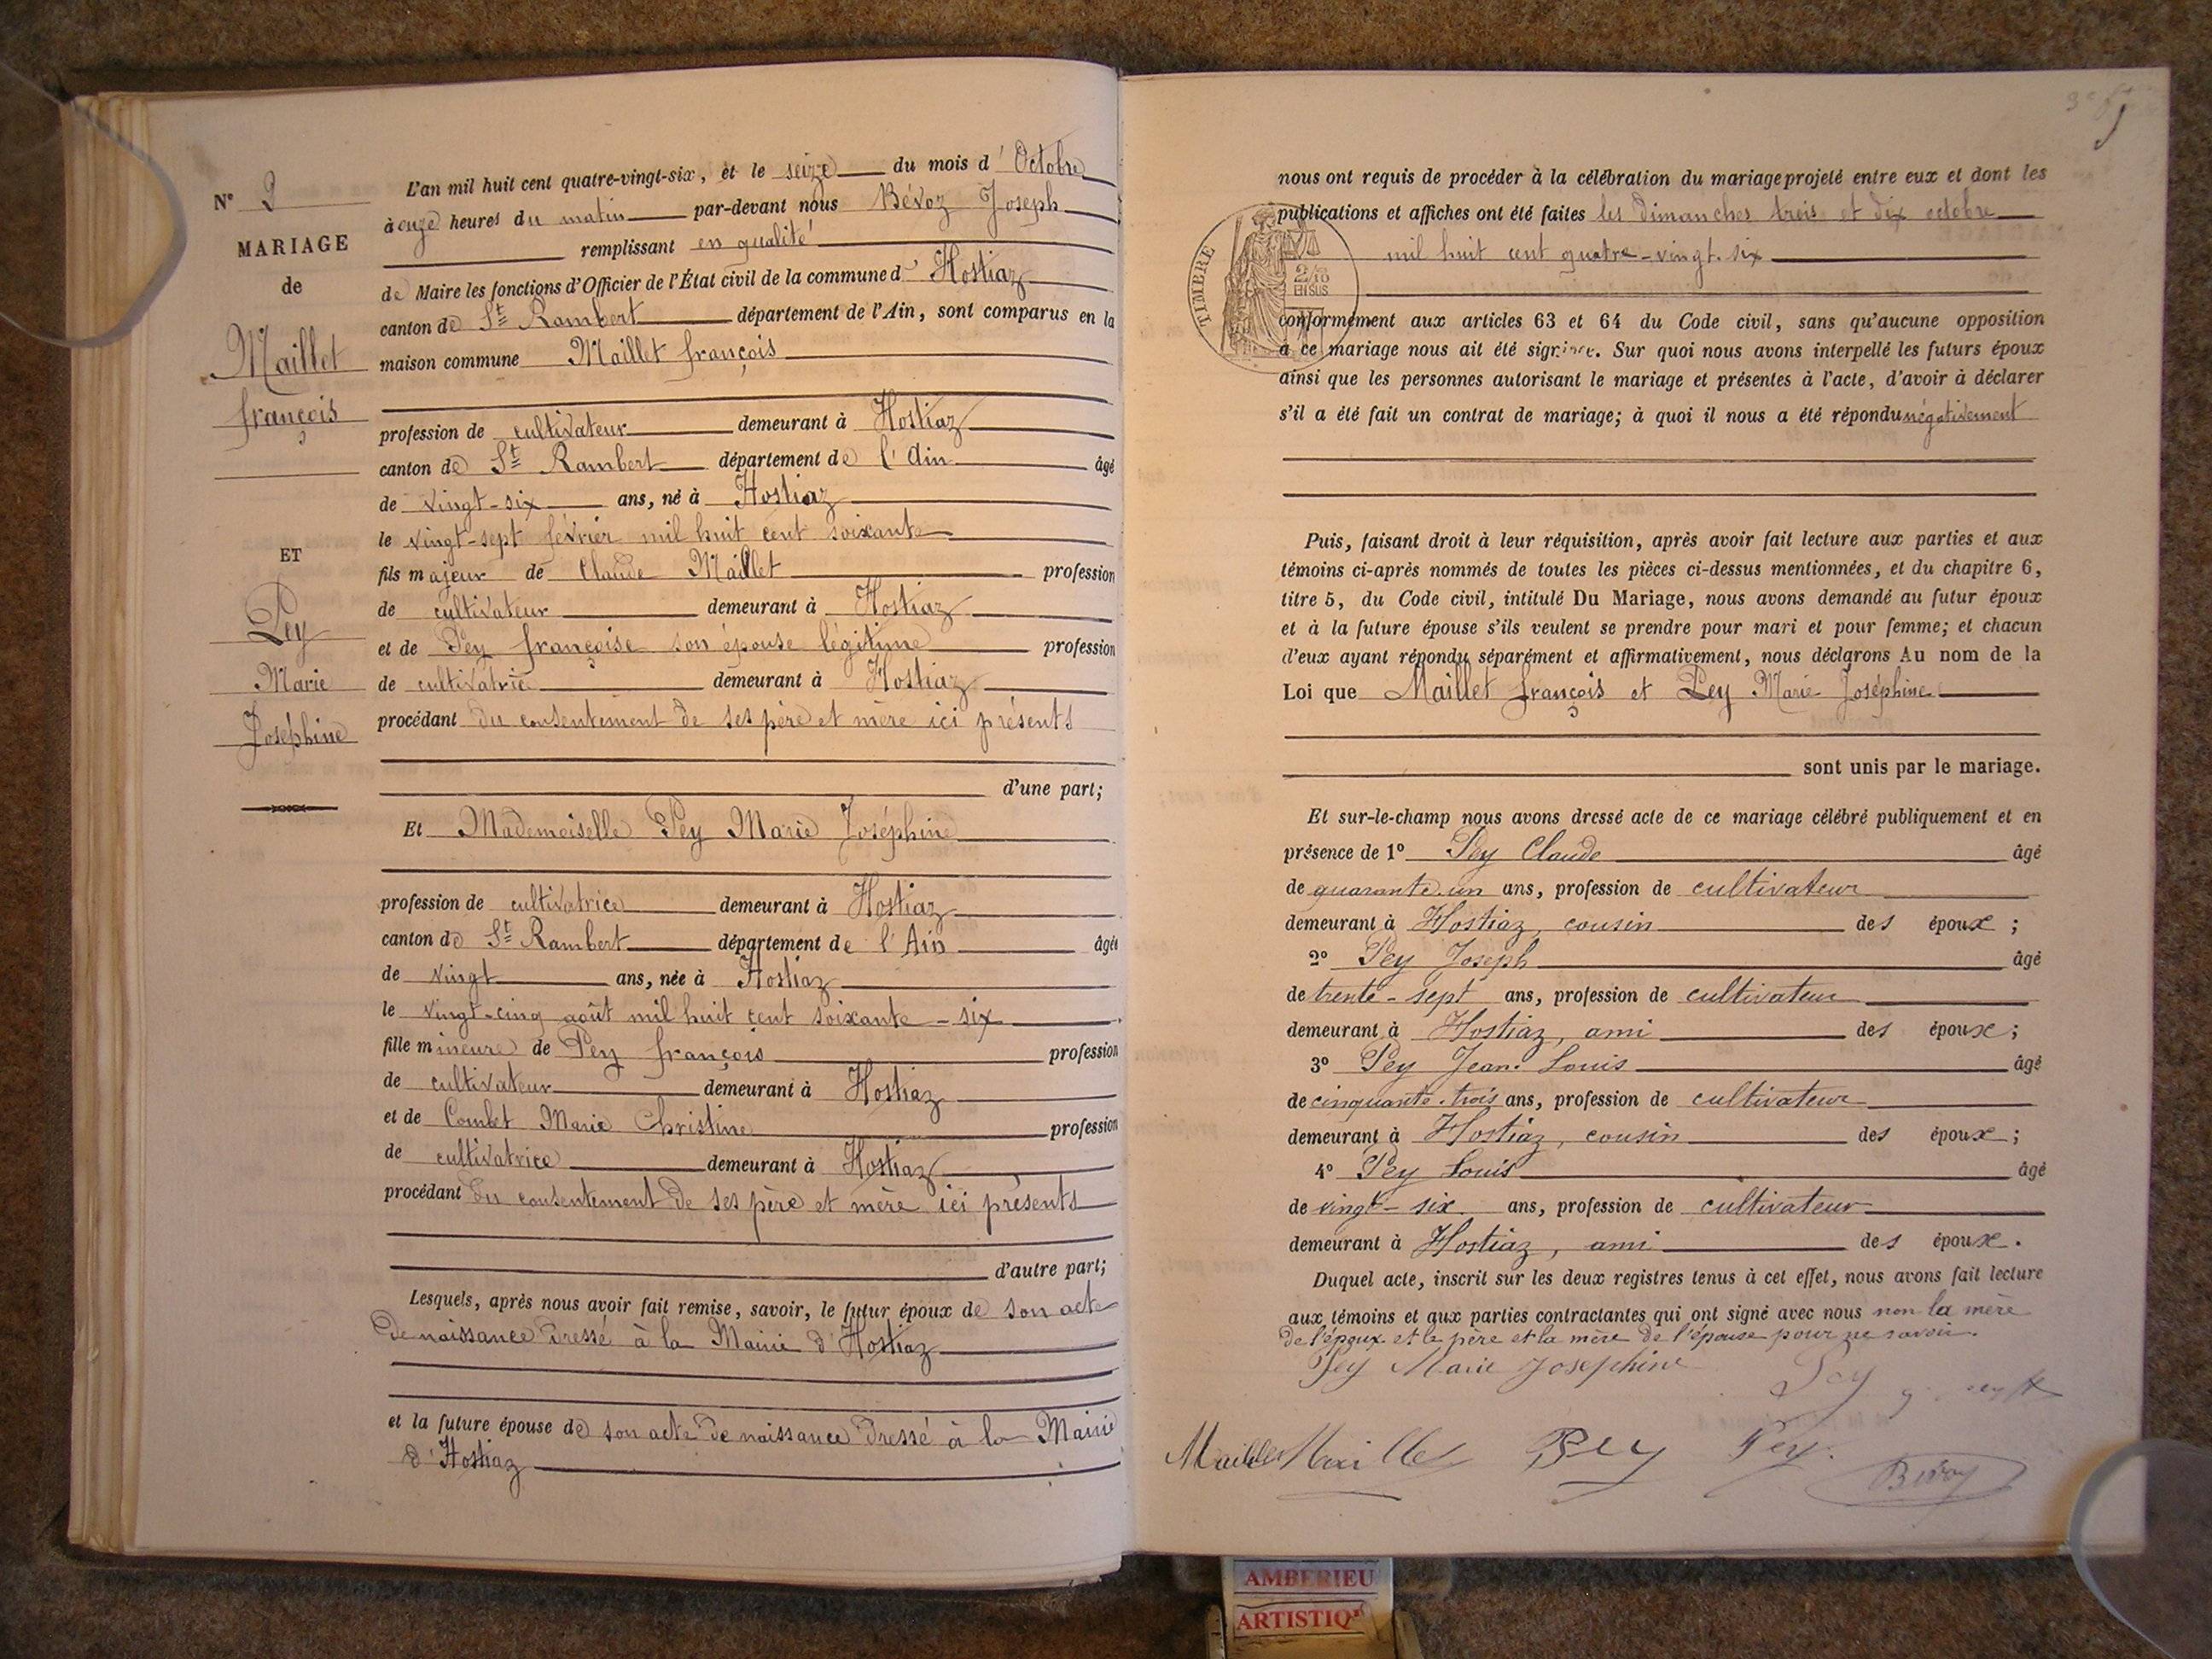 N° 2
MARIAGE
de
Maillet
françois
ET
Pey
Marie
Joséphine
L'an mil huit cent quatre-vingt-six, et le seize du mois d'Octobre
à onze heures du matin par-devant nous Bévoz Joseph
remplissant en qualité
de Maire les fonctions d'Officier de l'État civil de la commune d'Hostiaz
canton de St Rambert département de l'Ain, sont comparus en la
maison commune Maillet françois
profession de cultivateur demeurant à Hostiaz
canton de St Rambert département de l'Ain âgé
de vingt-six ans, né à Hostiaz
le vingt-sept février mil huit cent soixante
fils majeur de Claude Maillet profession
de cultivateur demeurant à Hostiaz
et de Pey françoise son épouse légitime profession
de cultivatrice demeurant à Hostiaz
procédant du consentement de ses père et mère ici présents
d'une part;
Et Mademoiselle Pey Marie Joséphine
profession de cultivatrice demeurant à Hostiaz
canton de St Rambert département de l'Ain âgée
de vingt ans, née à Hostiaz
le vingt-cinq août mil huit cent soixante-six
fille mineure de Pey françois profession
de cultivateur demeurant à Hostiaz
et de Combet Marie Christine profession
de cultivatrice demeurant à Hostiaz
procédant du consentement de ses père et mère ici présents
d'autre part;
Lesquels, après nous avoir fait remise, savoir, le futur époux de son acte
de naissance dressé à la Mairie d'Hostiaz
et la future épouse de son acte de naissance dressé à la Mairie
d'Hostiaz
nous ont requis de procéder à la célébration du mariage projeté entre eux et dont les
publications et affiches ont été faites les dimanches trois et dix octobre
mil huit cent quatre-vingt-six
TIMBRE
2/10
EN SUS
conformément aux articles 63 et 64 du Code civil, sans qu'aucune opposition
à ce mariage nous ait été signifiée. Sur quoi nous avons interpellé les futurs époux
ainsi que les personnes autorisant le mariage et présentes à l'acte, d'avoir à déclarer
s'il a été fait un contrat de mariage; à quoi il nous a été répondu négativement
Puis, faisant droit à leur réquisition, après avoir fait lecture aux parties et aux
témoins ci-après nommés de toutes les pièces ci-dessus mentionnées, et du chapitre 6,
titre 5, du Code civil, intitulé Du Mariage, nous avons demandé au futur époux
et à la future épouse s'ils veulent se prendre pour mari et pour femme; et chacun
d'eux ayant répondu séparément et affirmativement, nous déclarons Au nom de la
Loi que Maillet françois et Pey Marie Joséphine
sont unis par le mariage.
Et sur-le-champ nous avons dressé acte de ce mariage célébré publiquement et en
présence de 1° Pey Claude âgé
de quarante-un ans, profession de cultivateur
demeurant à Hostiaz, cousin des époux;
2° Pey Joseph âgé
de trente-sept ans, profession de cultivateur
demeurant à Hostiaz, ami des époux;
3° Pey Jean-Louis âgé
de cinquante-trois ans, profession de cultivateur
demeurant à Hostiaz, cousin des époux;
4° Pey Louis âgé
de vingt-six ans, profession de cultivateur
demeurant à Hostiaz, ami des époux.
Duquel acte, inscrit sur les deux registres tenus à cet effet, nous avons fait lecture
aux témoins et aux parties contractantes qui ont signé avec nous non la mère
de l'époux et le père et la mère de l'épouse pour ne savoir.
Pey Marie Josephine Pey
Maillet Maillet Pey Pey. Bévoz
AMBERIEU
ARTISTIQ